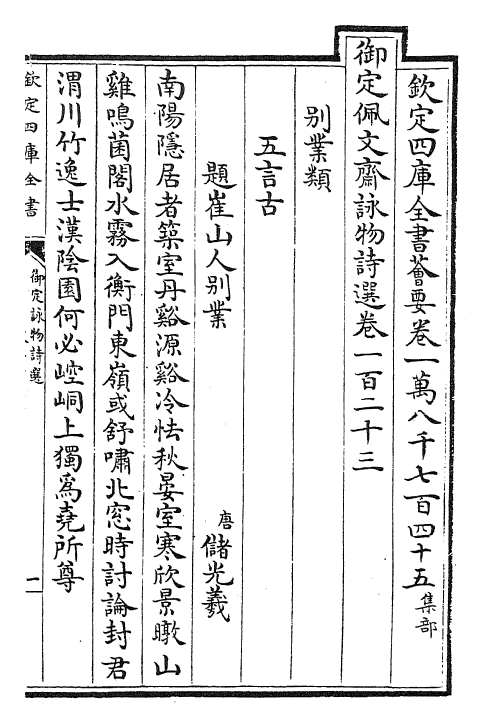 欽定四庫全書薈要卷一萬八千七百四十五集部
御定佩文齋詠物詩選卷一百二十三
別業類
五言古
題崔山人別業
唐儲光羲
南陽隱居者築室丹谿源谿冷怯秋晏室寒欣景暾山
雞鳴菌閣水霧入衡門東嶺或舒嘯北窓時討論封君
渭川竹逸士漢陰園何必崆峒上獨爲堯所尊
欽定四庫全書
御定詠物詩選
一